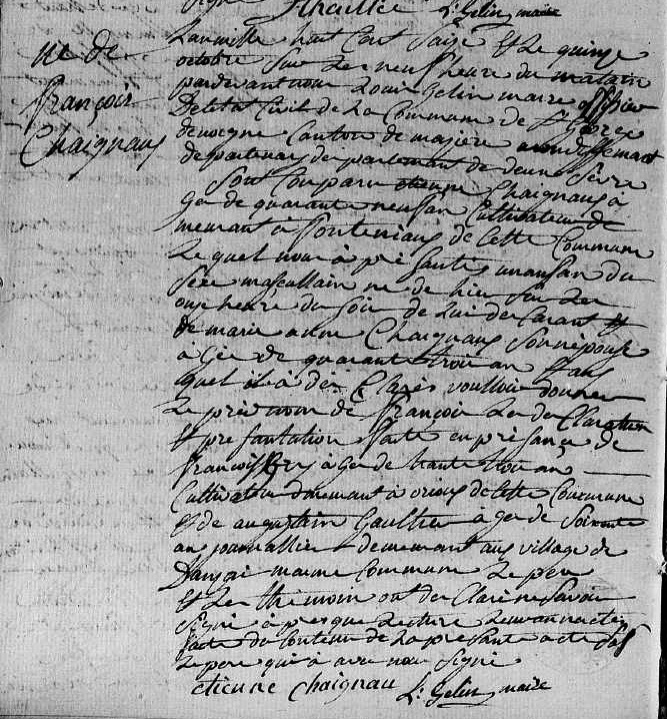 Signé Chaillée Ls Gelin maire
né de
françois
Chaignaus
Lan mille huit Cent Saize Et Le quinze
octobre Sur Les neuf heure du matain
pardevant nous Louis Gelin maire offisier
De letat Civil de La Commune de St Géorge
de noigne Canton de masiere arondissemant
de partenay departemant de deux Sèvre
Sont Conparu etienne Chaignaus à
Gé de quarante neuf an Cultivateur de
meurant à fonteniaus de Cette Commune
Le quel nous à pré santés un anfan du
Sexe mascullain né de hier Sur Les
onze heure du Soir de Lui de Clarant Et
de marie anne Chaignaus Son népouse
à Gée de quarante trois an Et au
quel il à dé Clarés voulloir donner
Le pré nom de françois Les de Claration
Et pré santation faitte en présance de
françois à gé de trante trois an
Cultivateur demeurant à de Cette Commune
Et de augustain Gaultier à gé de Soixante
an journallier demeurant aus village de
Danzai maime Commune Le pere
Et Les thémoin ont dé Claré ne Savoir
Signé à pres que Lecture Leur an na étés
faite du Contenu de La présante acte
Le pere qui à avec nous Signé
etienne Chaignau Ls Gelin maire